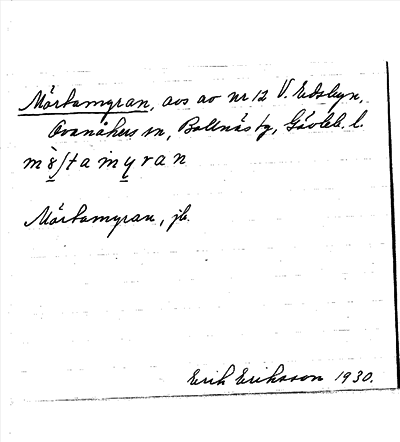 Mårtamyran, avs av nr 12 V. Edsbyn,
Ovanåkers sn, Bollnäs tg, Gävleb. l.
Mårtamyran, jb.
Erik Eriksson 1930.